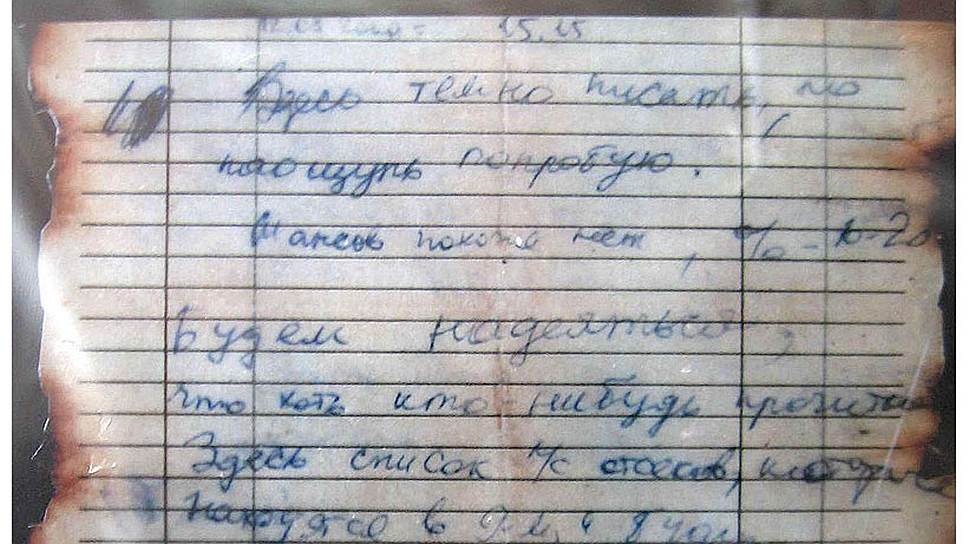 15.15
Здесь темно писать, но
наощупь попробую.
Шансов похоже нет, % - 10-20
Будем надеяться,
что хоть кто-нибудь прочитает
Здесь список л/с отсеков, которые
находятся в 9-м и